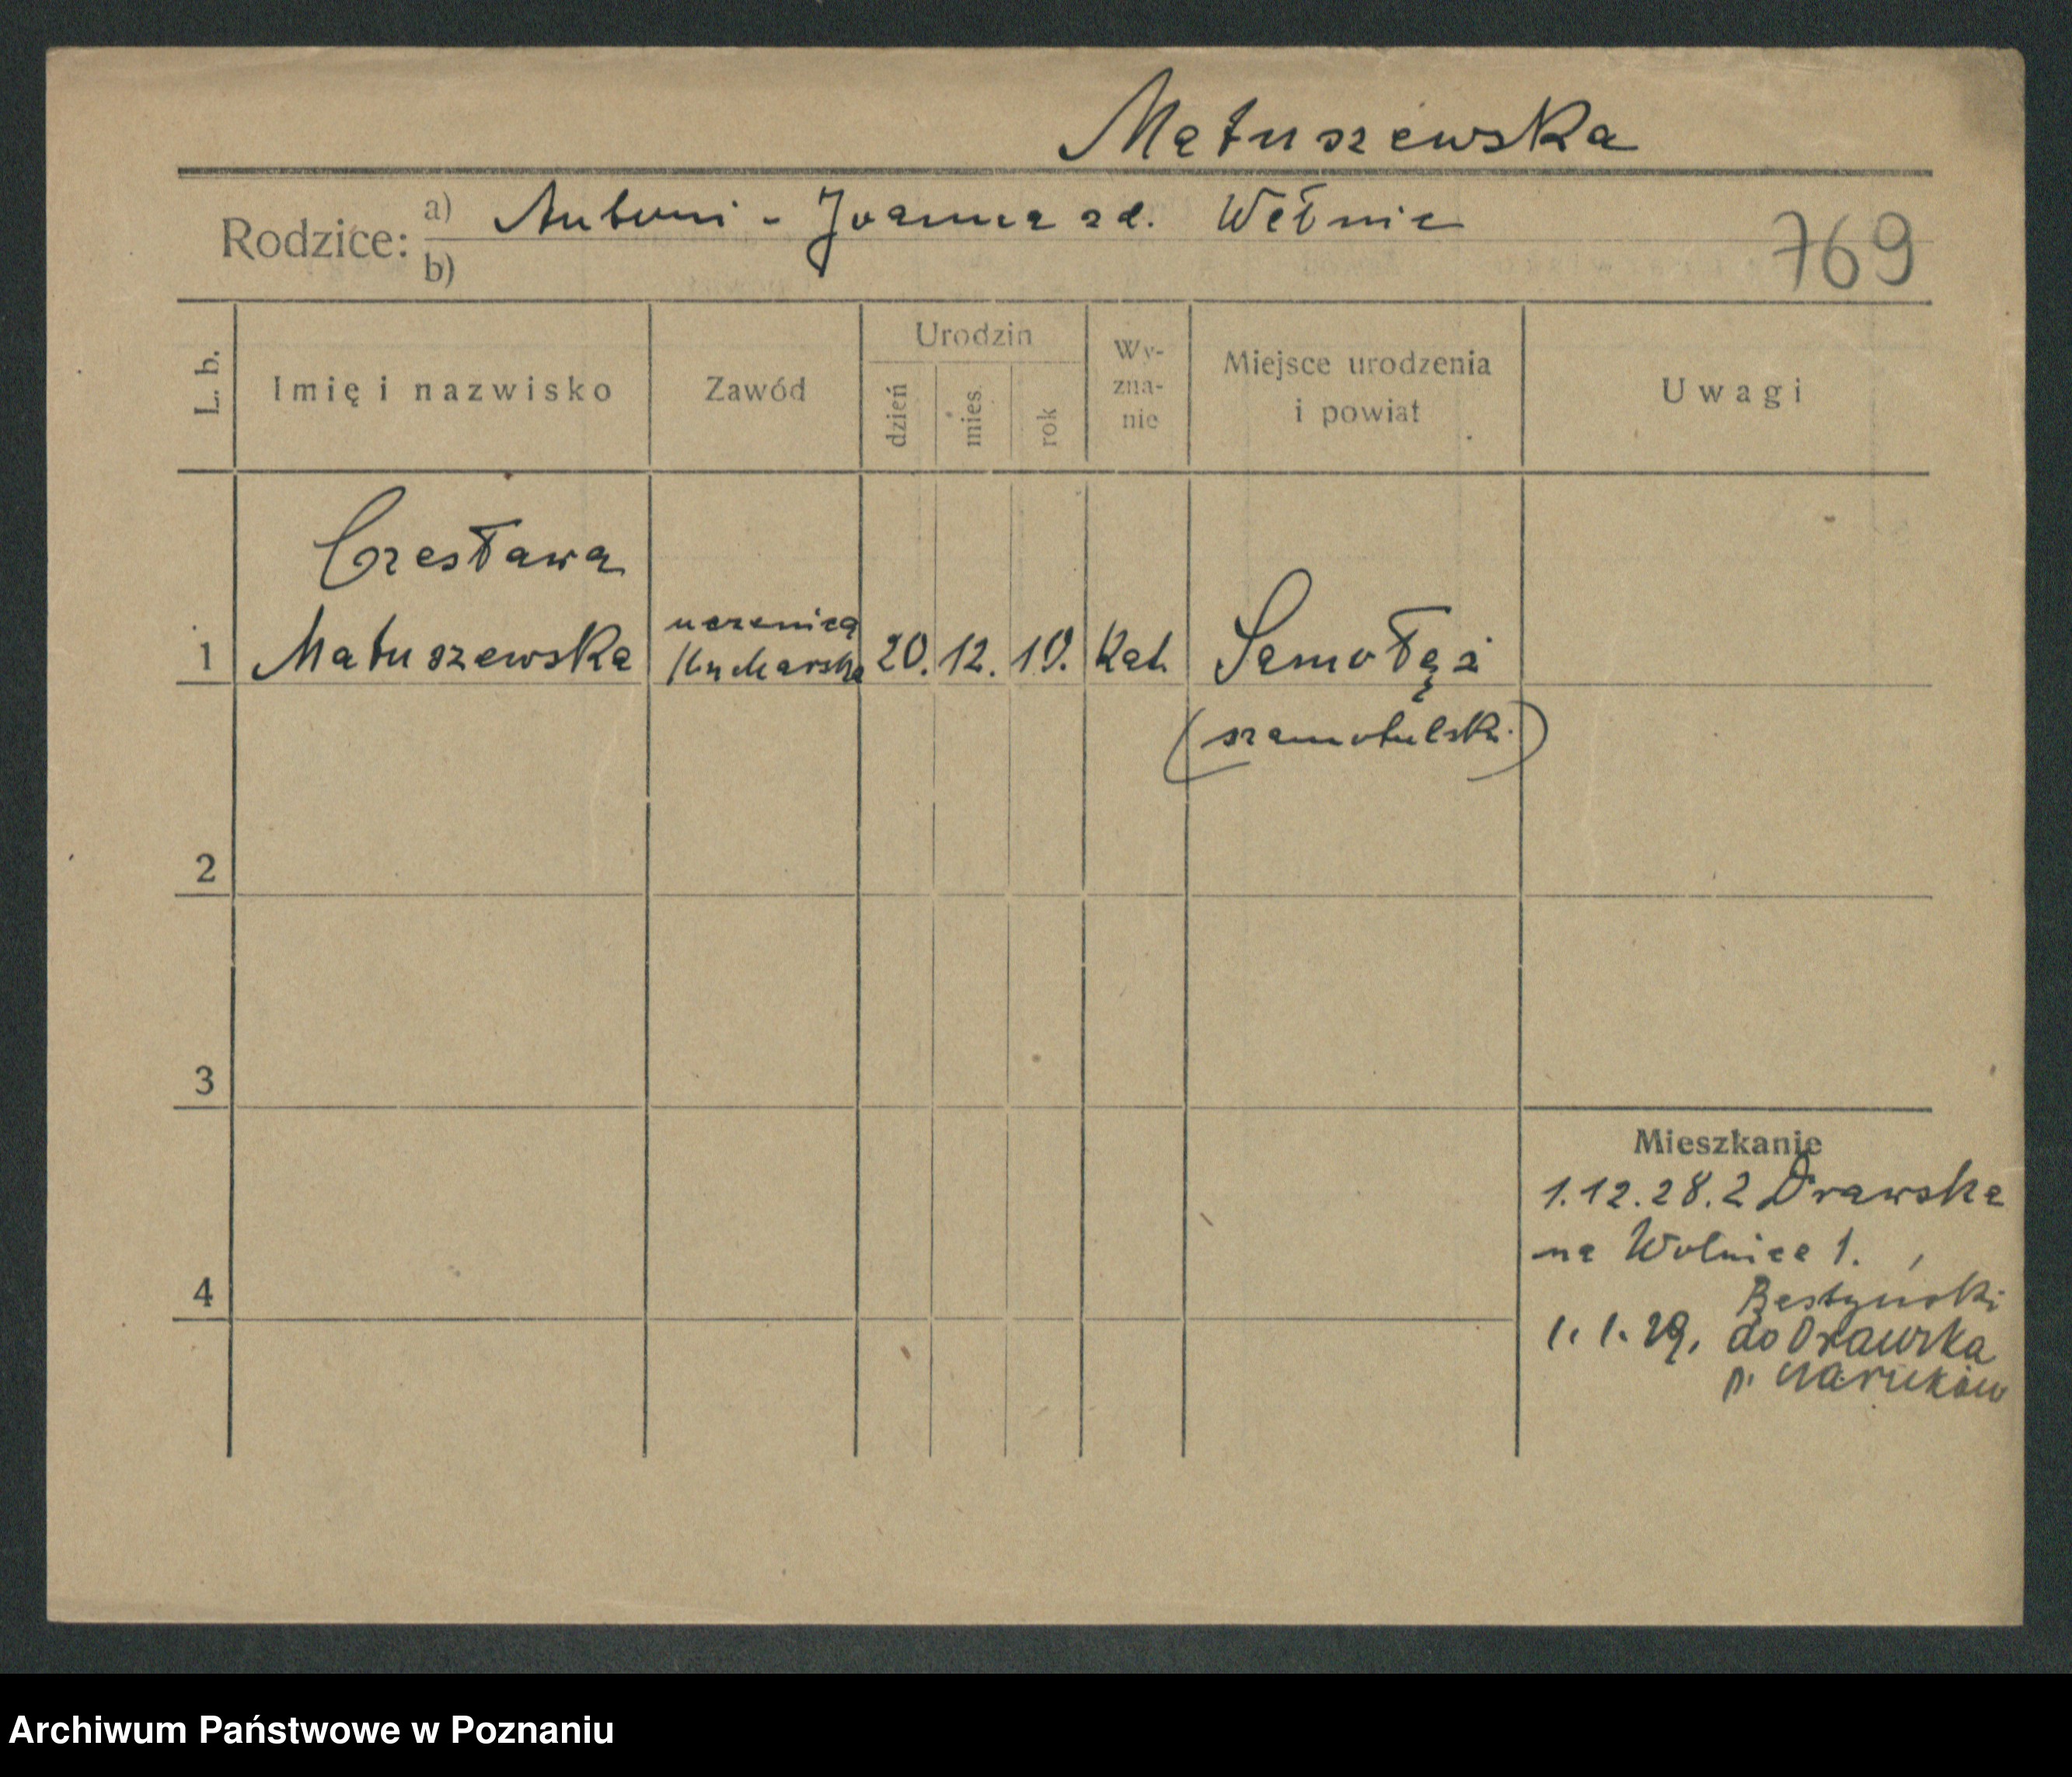 Matuszewska
Rodzice: a) Antoni - Joanna zd. Wełnic
b)
769
L. b.
Imię i nazwisko
Zawód
Urodzin
dzień
mies.
rok
Wy-
zna-
nie
Miejsce urodzenia
i powiat
Uwagi
Czesława
1 Matuszewska
uczenica
kucharska
20. 12. 10. kat.
Samołęż
(szamotulsk.)
2
3
4
Mieszkanie
1.12.28. z Drawska
na Wolnica 1.
1.1.29. do Drawska
p.
Archiwum Państwowe w Poznaniu